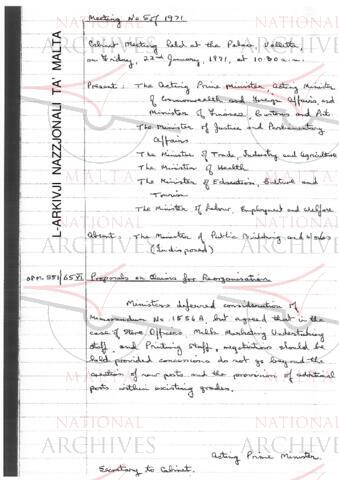 Meeting No 5 of 1971
Cabinet Meeting held at the Palace, Valletta,
on Friday, 22nd January, 1971, at 10.30 a.m.
Present : The Acting Prime Minister, Acting Minister
of Commonwealth and Foreign Affairs, and
Minister of Finance, Customs and Port
The Minister of Justice and Parliamentary
Affairs
The Minister of Trade, Industry and Agriculture
The Minister of Health
The Minister of Education, Culture and
Tourism
The Minister of Labour, Employment and Welfare
Absent : The Minister of Public Building and Works
(Indisposed)
OPM 551/65 VI
Proposals or Claims for Reorganisation
Ministers deferred consideration of
Memorandum No. 1556A, but agreed that in the
case of Store Officers, Milk Marketing Undertaking
staff, and Printing Staff, negotiations should be
held provided concessions do not go beyond the
creation of new posts and the provision of additional
posts within existing grades.
Acting Prime Minister.
Secretary to Cabinet.
L-ARKIVJI NAZZJONALI TA' MALTA
NATIONAL
ARCHIVES
MALTA